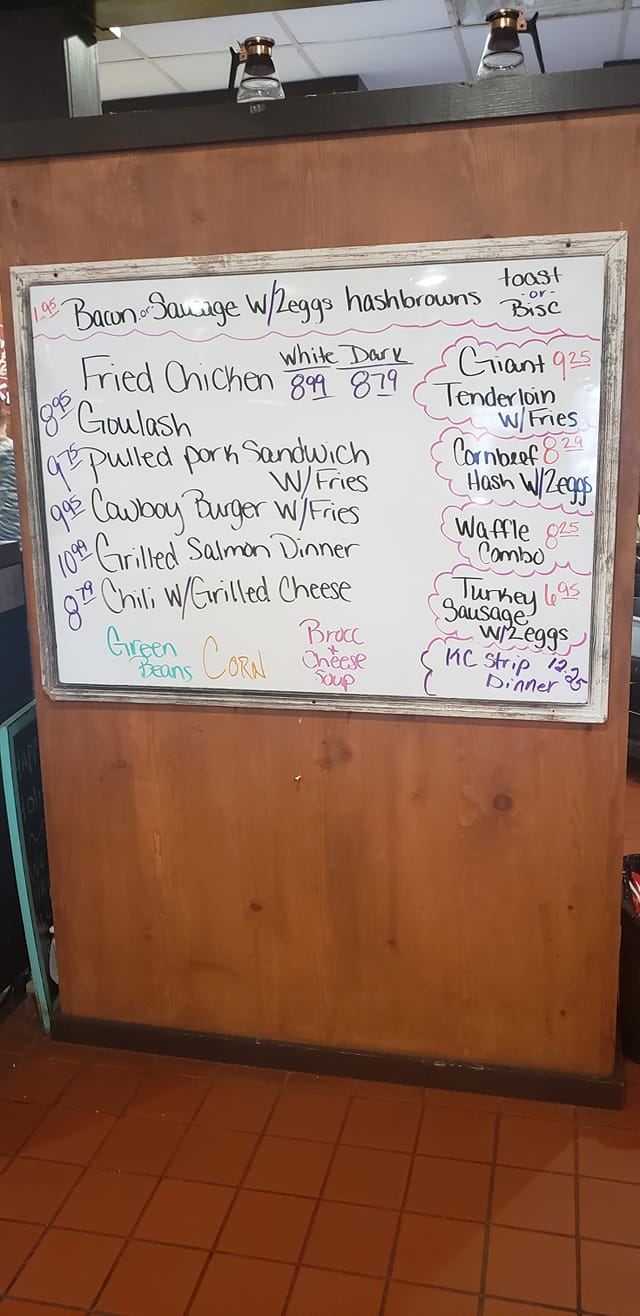 1.95 Bacon or Sausage W/2eggs hashbrowns toast
-or-
Bisc
White Dark
Fried Chicken 8.99 8.79
8.95 Goulash
9.75 pulled pork Sandwich
W/Fries
9.95 Cowboy Burger W/Fries
10.99 Grilled Salmon Dinner
8.79 Chili W/Grilled Cheese
Green
Beans
CORN
Brocc
+
Cheese
Soup
Giant 9.25
Tenderloin
W/Fries
Cornbeef 8.29
Hash W/2eggs
Waffle 8.25
Combo
Turkey 6.95
Sausage
W/2eggs
KC Strip 12.25
Dinner